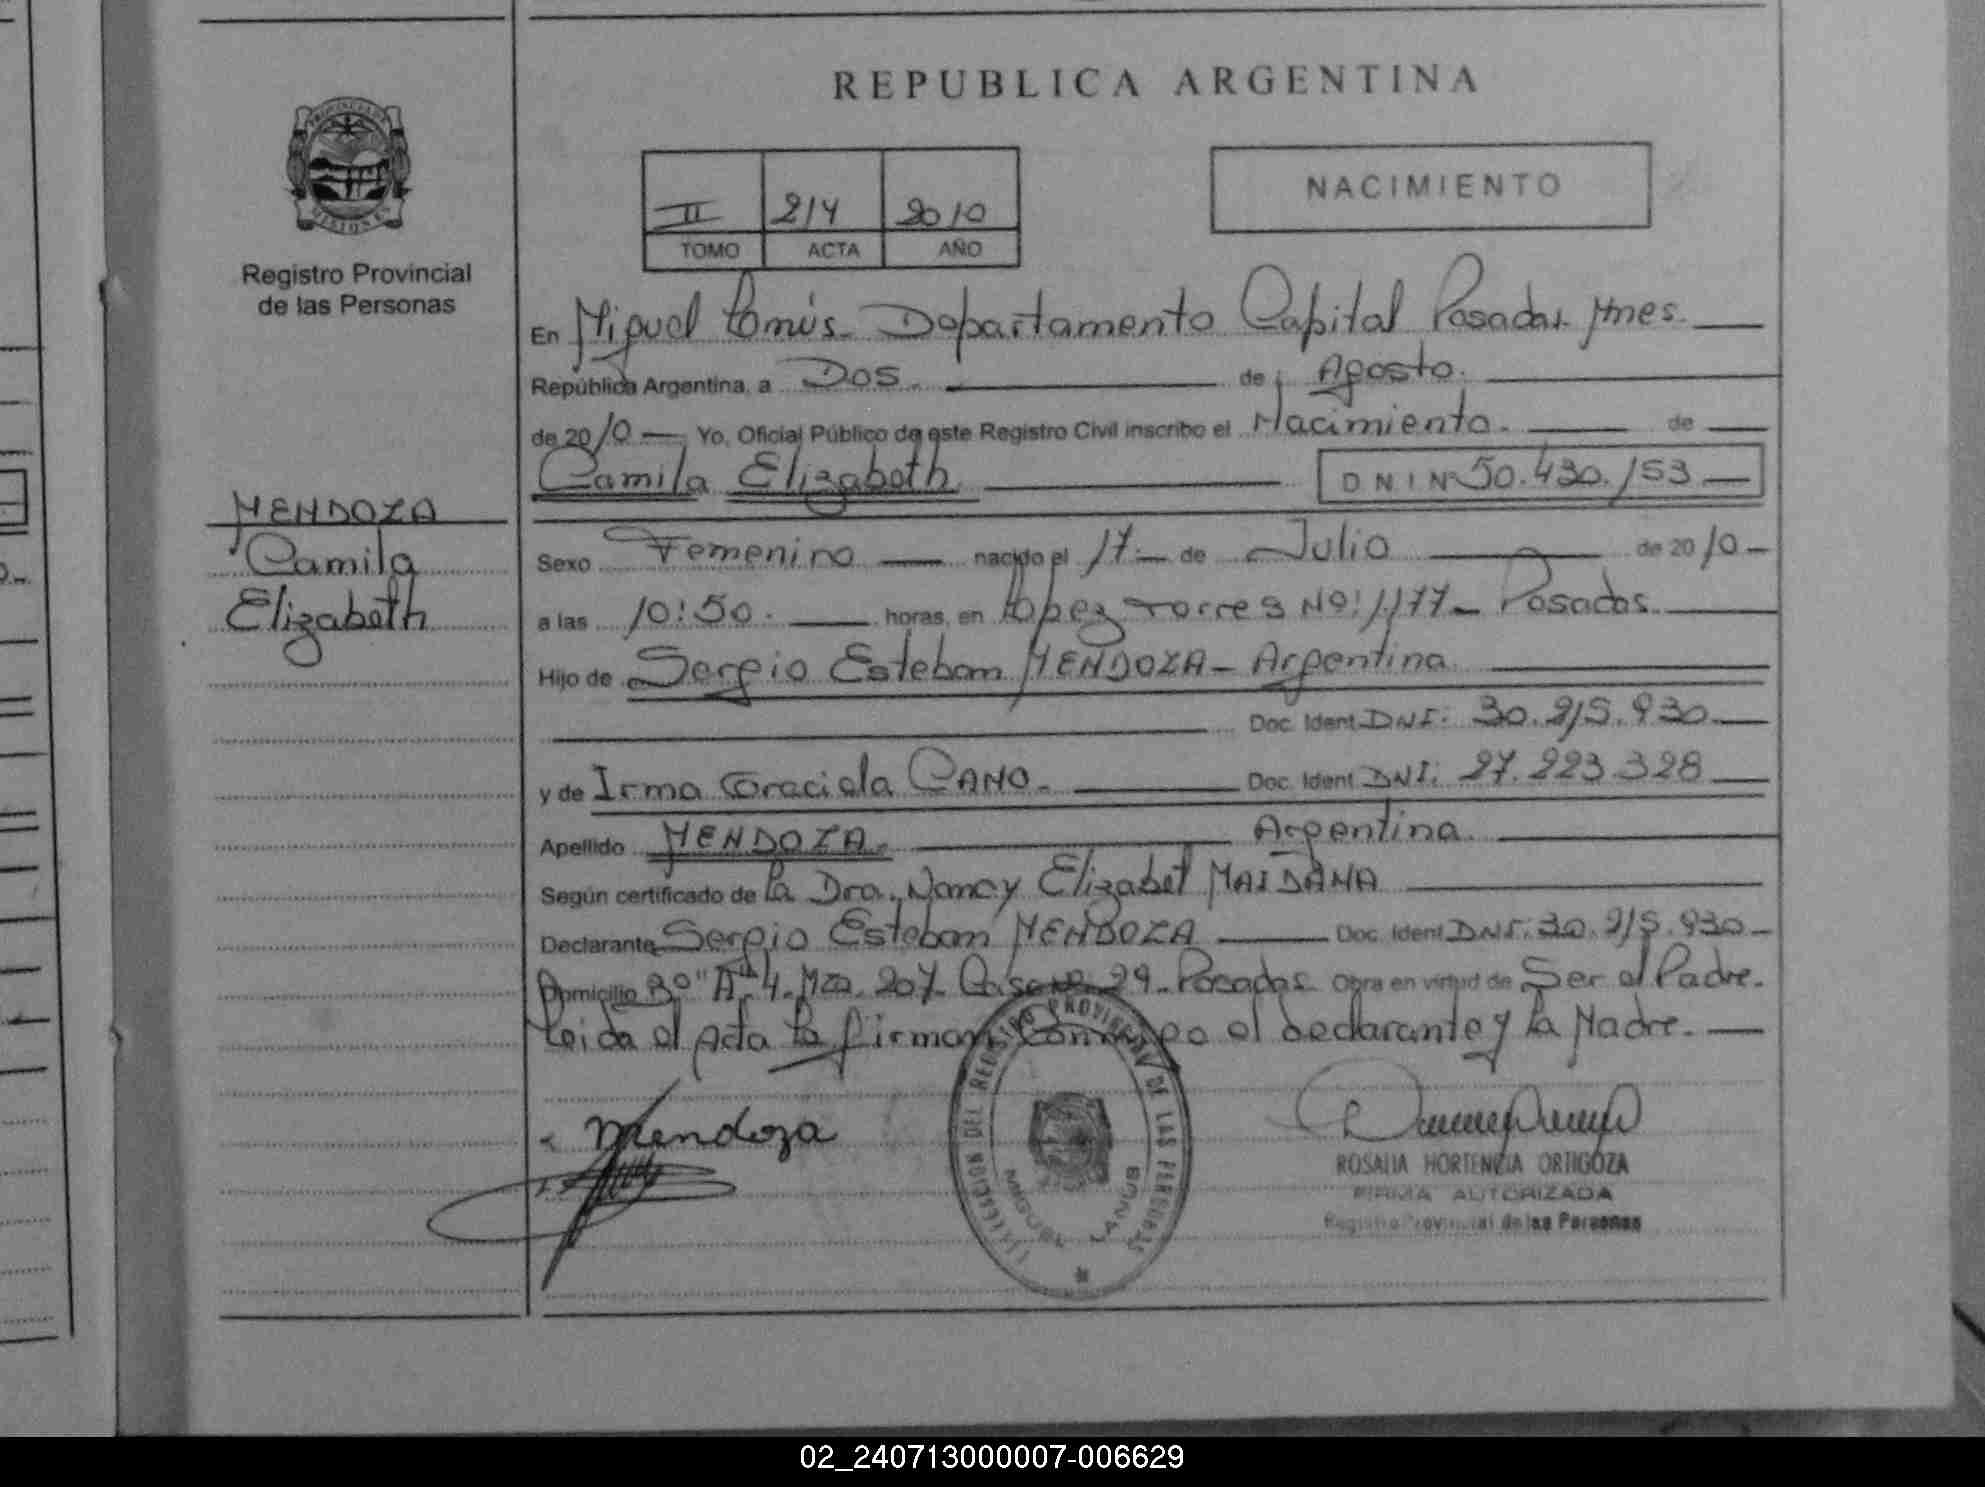 REPUBLICA ARGENTINA
PROVINCIA DE
MISIONES
Registro Provincial
de las Personas
II 214 2010
TOMO ACTA AÑO
NACIMIENTO
En Miguel Lanús. Departamento Capital Posadas Mnes.
República Argentina, a Dos. de Agosto.
de 2010 Yo, Oficial Público de este Registro Civil inscribo el Nacimiento. de
Camila Elizabeth DNI Nº 50.430.153
MENDOZA
Camila
Elizabeth
Sexo Femenino nacido el 17 de Julio de 2010
a las 10:50. horas, en López Torres Nº: 1.177 - Posadas.
Hijo de Sergio Esteban MENDOZA - Argentina.
Doc. Ident DNI: 30.215.930
y de Irma Graciela CANO. Doc. Ident DNI: 27.223.328
Apellido MENDOZA. Argentina.
Según certificado de La Dra. Nancy Elizabet MAIDANA
Declarante Sergio Esteban MENDOZA Doc. Ident DNI: 30.215.930
Domicilio Bº "A" 4 - Mza. 207 - Casa Nº 29 - Posadas Obra en virtud de Ser el Padre.
Leida el Acta La firman Conmigo el declarante y La Madre.
Mendoza
DELEGACION DEL REGISTRO PROVINCIAL DE LAS PERSONAS
MIGUEL LANUS
ROSALIA HORTENCIA ORTIGOZA
FIRMA AUTORIZADA
Registro Provincial de las Personas
02_240713000007-006629